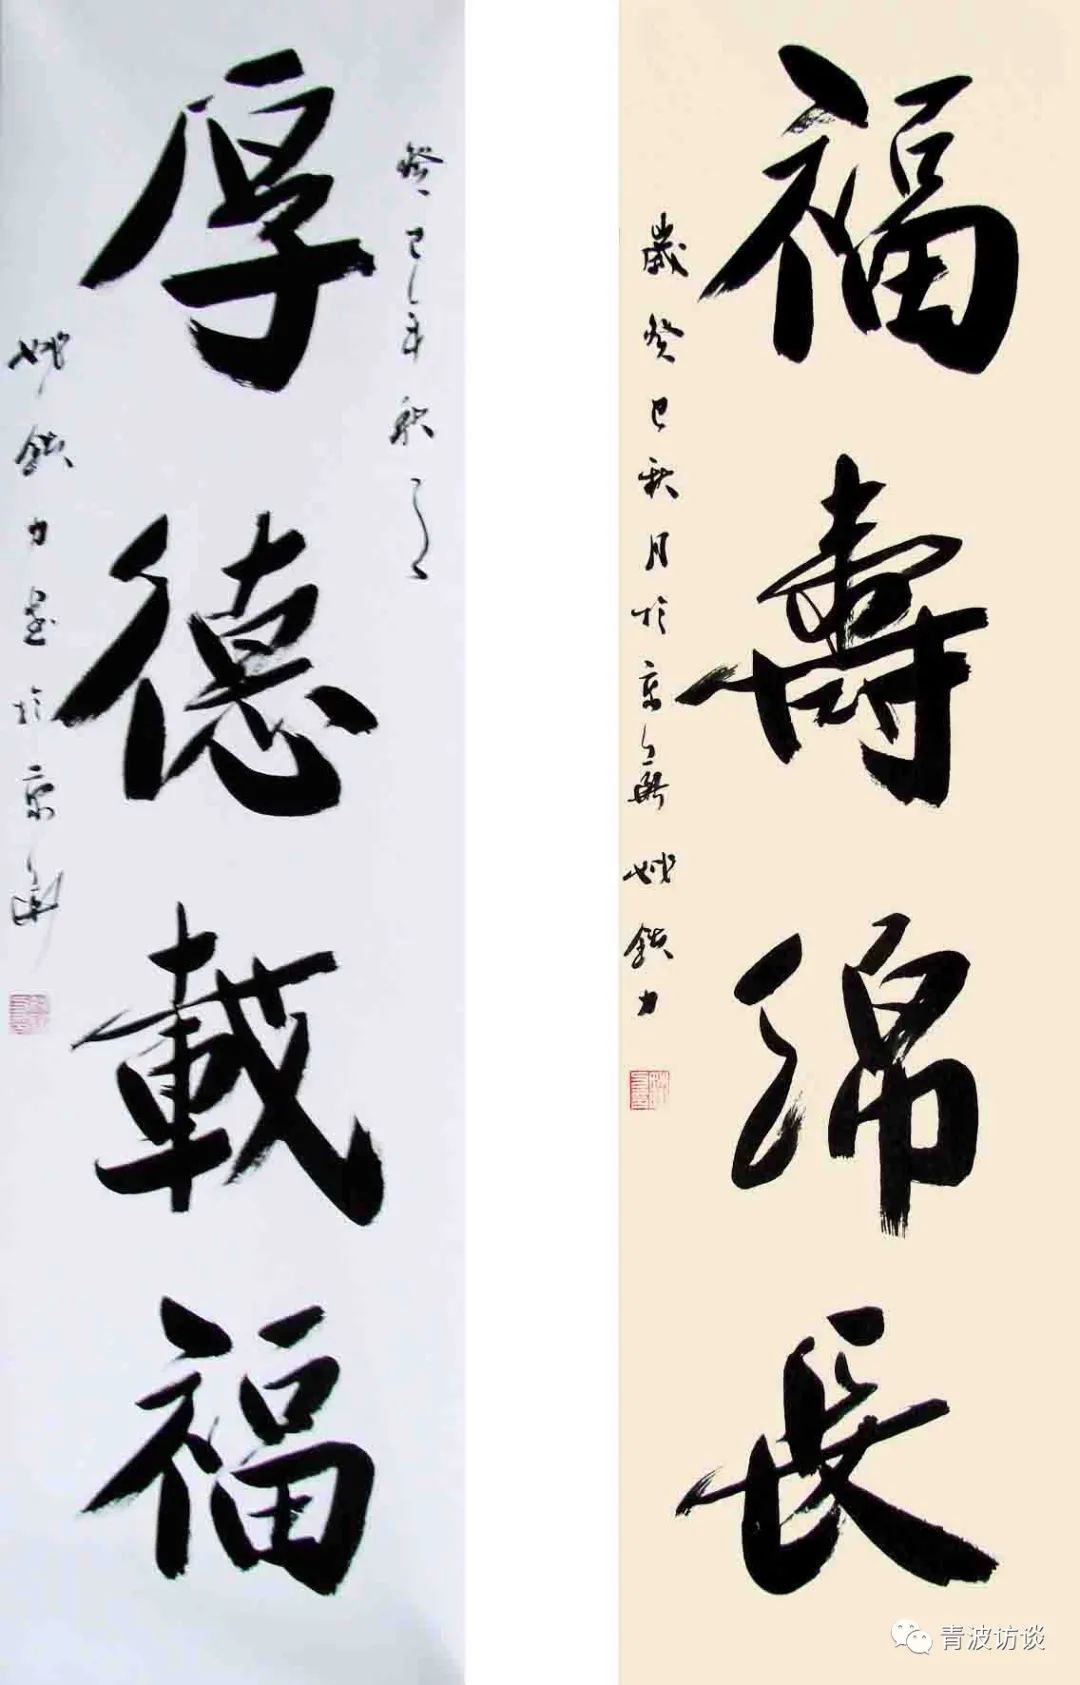 福壽綿長
歲癸巳秋月於京華 姚鉄力
癸巳年秋
厚德載福
姚鉄力書於京華
青波访谈